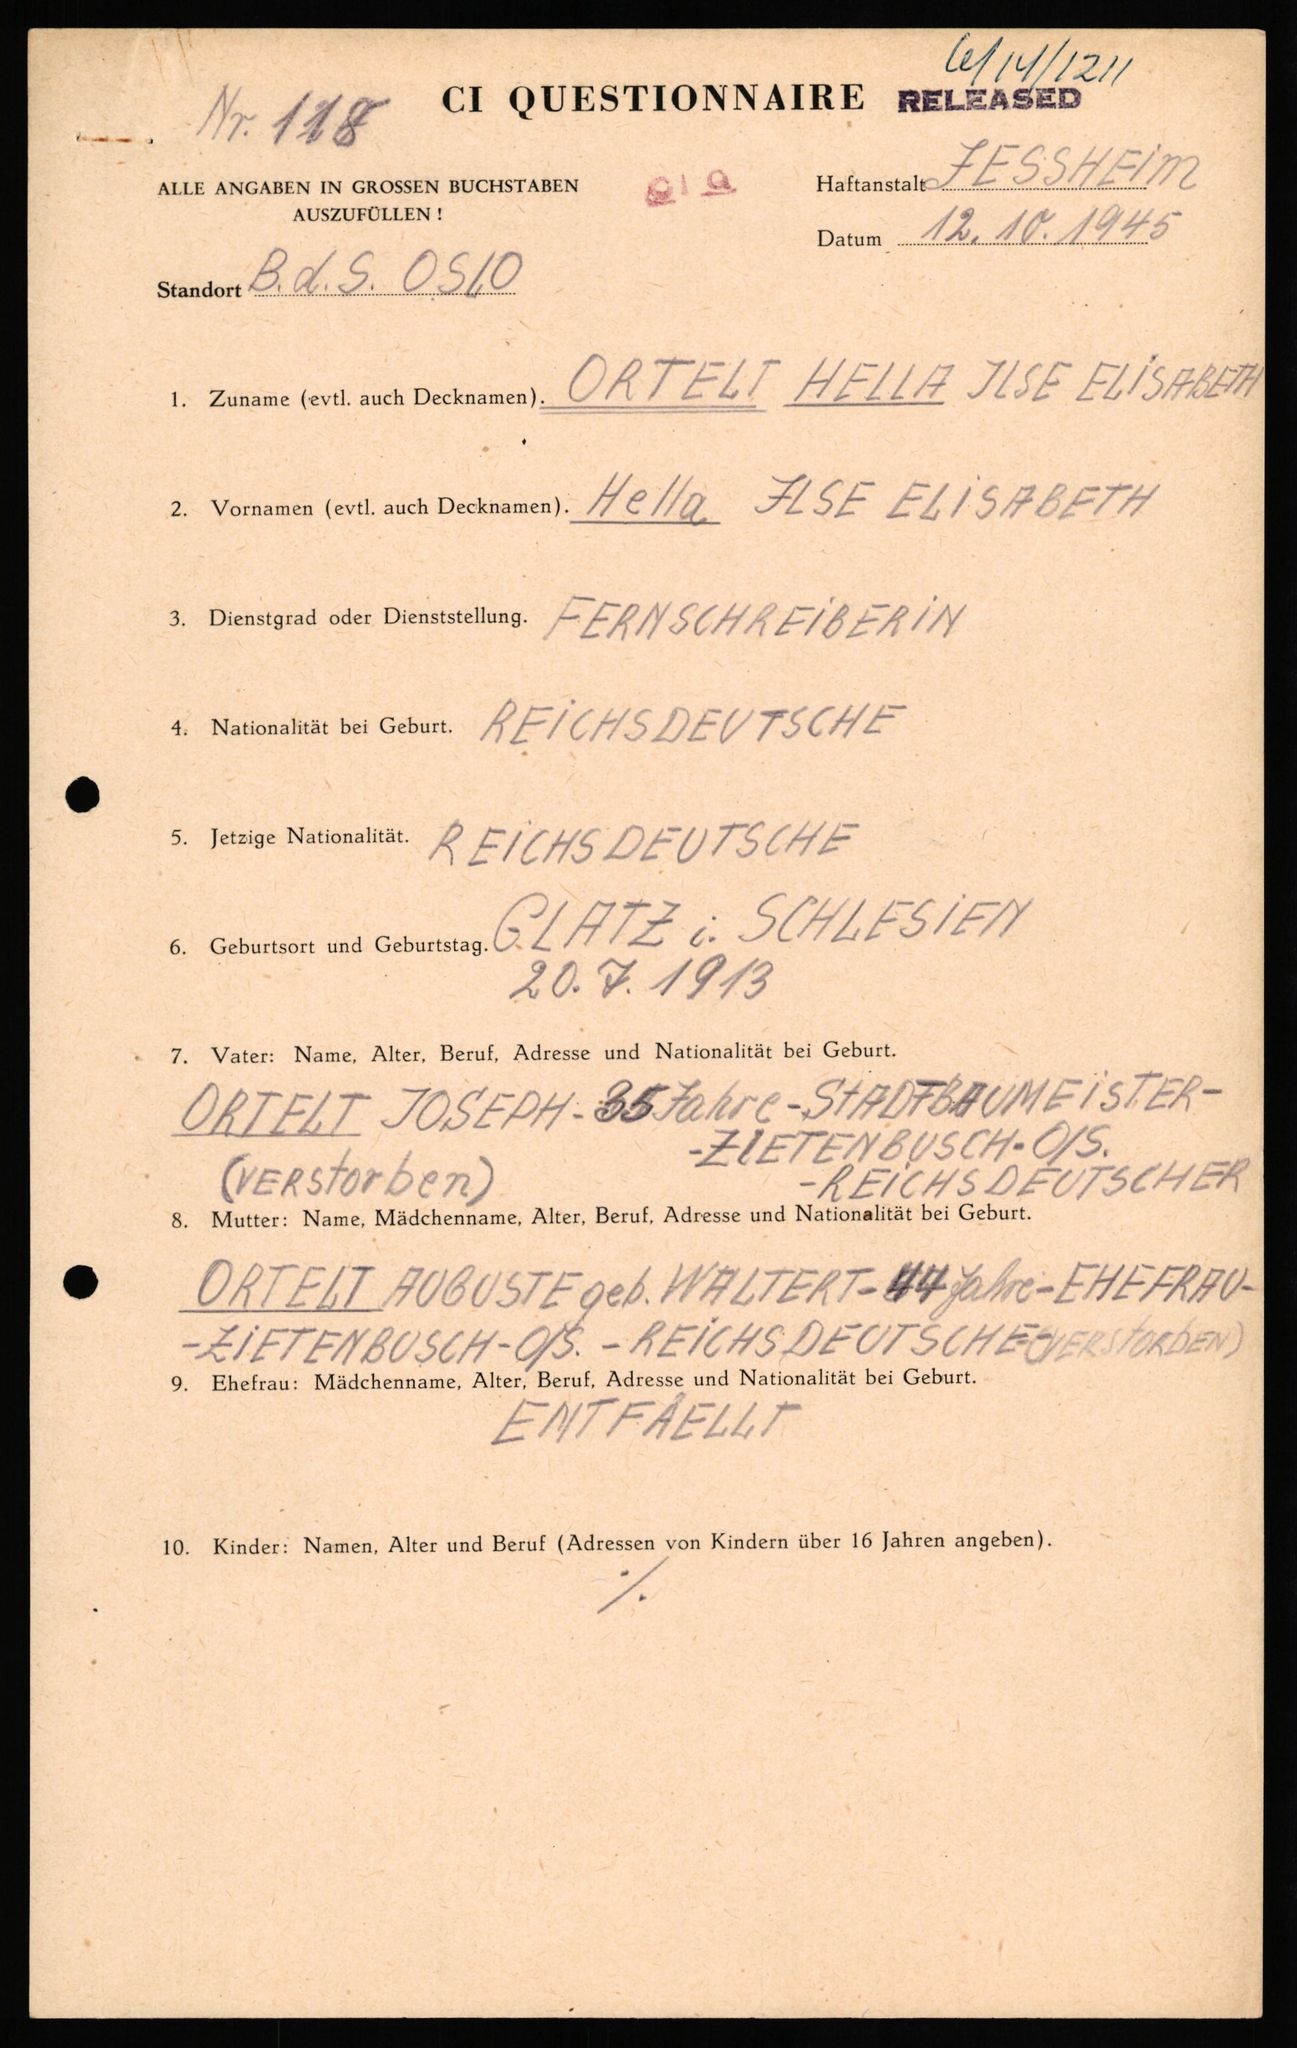 W/14/1211
Nr. 118
CI QUESTIONNAIRE
RELEASED
ALLE ANGABEN IN GROSSEN BUCHSTABEN
AUSZUFÜLLEN!
Haftanstalt JESSHEIM
Datum 12. 10. 1945
Standort B.d.S. OSLO
1. Zuname (evtl. auch Decknamen). ORTELT HELLA ILSE ELISABETH
2. Vornamen (evtl. auch Decknamen). Hella ILSE ELISABETH
3. Dienstgrad oder Dienststellung. FERNSCHREIBERIN
4. Nationalität bei Geburt. REICHSDEUTSCHE
5. Jetzige Nationalität. REICHSDEUTSCHE
6. Geburtsort und Geburtstag. GLATZ i. SCHLESIEN
20. 7. 1913
7. Vater: Name, Alter, Beruf, Adresse und Nationalität bei Geburt.
ORTELT JOSEPH - 35 Jahre - STADTBAUMEISTER -
- ZIETENBUSCH - O/S.
(VERStorben) - REICHSDEUTSCHER
8. Mutter: Name, Mädchenname, Alter, Beruf, Adresse und Nationalität bei Geburt.
ORTELT AUGUSTE geb. WALTERT - 44 Jahre - EHEFRAU -
- ZIETENBUSCH - O/S. - REICHSDEUTSCHE - (VERSTORBEN)
9. Ehefrau: Mädchenname, Alter, Beruf, Adresse und Nationalität bei Geburt.
ENTFÄELLT
10. Kinder: Namen, Alter und Beruf (Adressen von Kindern über 16 Jahren angeben).
·/.